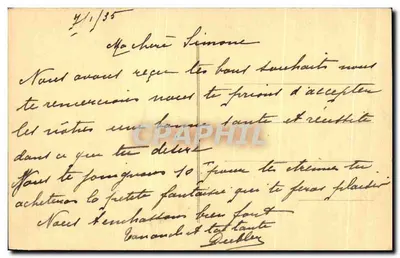 7/1/35
Ma chère Simone
Nous avons reçu tes bons souhaits nous
te remercions nous te prions d'accepter
les nôtres une bonne santé et réussite
dans ce que tu désire
Nous te joignons 10 pour tes étrennes tu
acheteras la petite fantaisie que te feras plaisir
Nous t'embrassons bien fort
et ta tante
CPARAMA